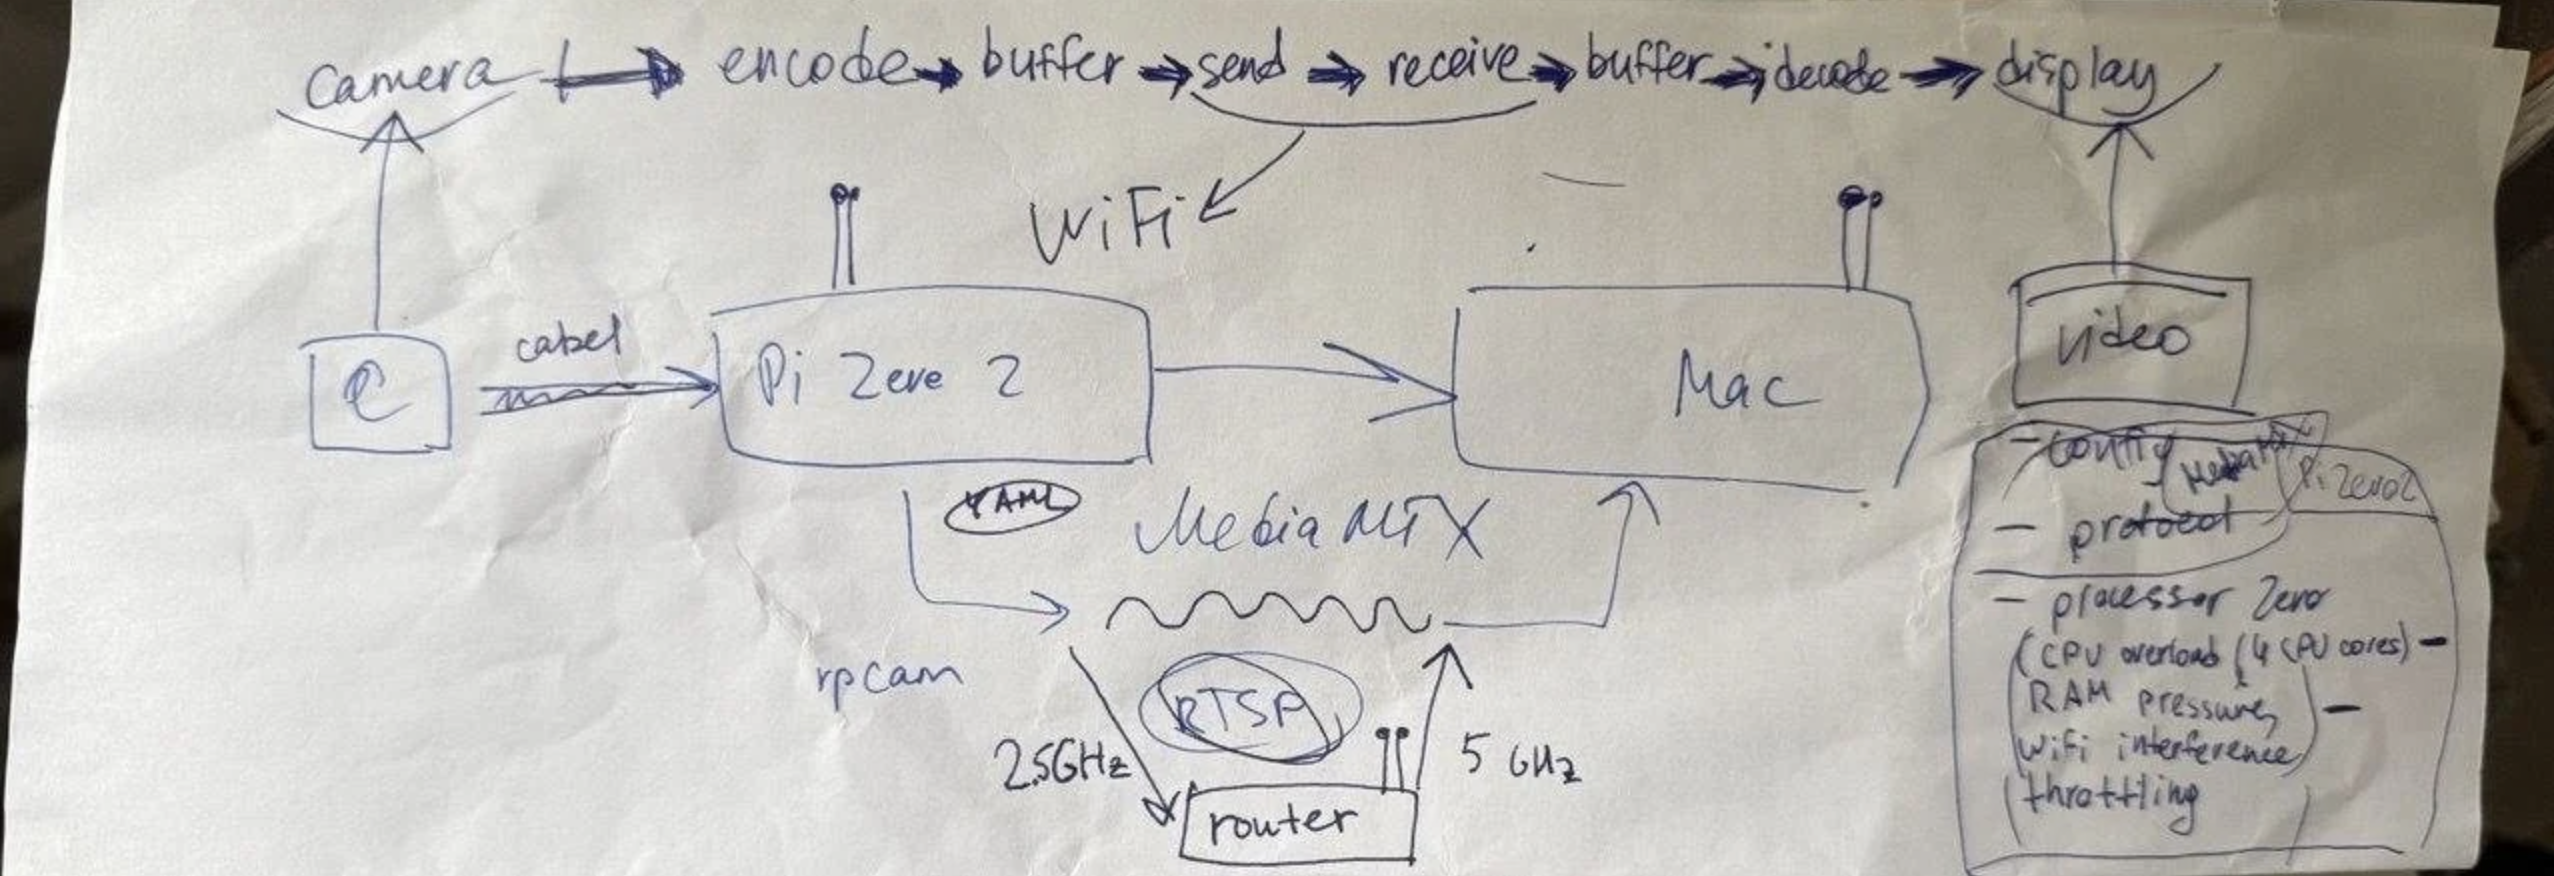 camera → encode → buffer → send → receive → buffer → decode → display
WiFi
C
cabel
Pi Zero 2
Mac
video
YAML
MediaMTX
rpcam
RTSP
2.5GHz
5 GHz
router
- config MediaMTX Pi Zero2
- protocol
- processor Zero
(CPU overload (4 CPU cores) -
RAM pressure, -
WiFi interference)
throttling